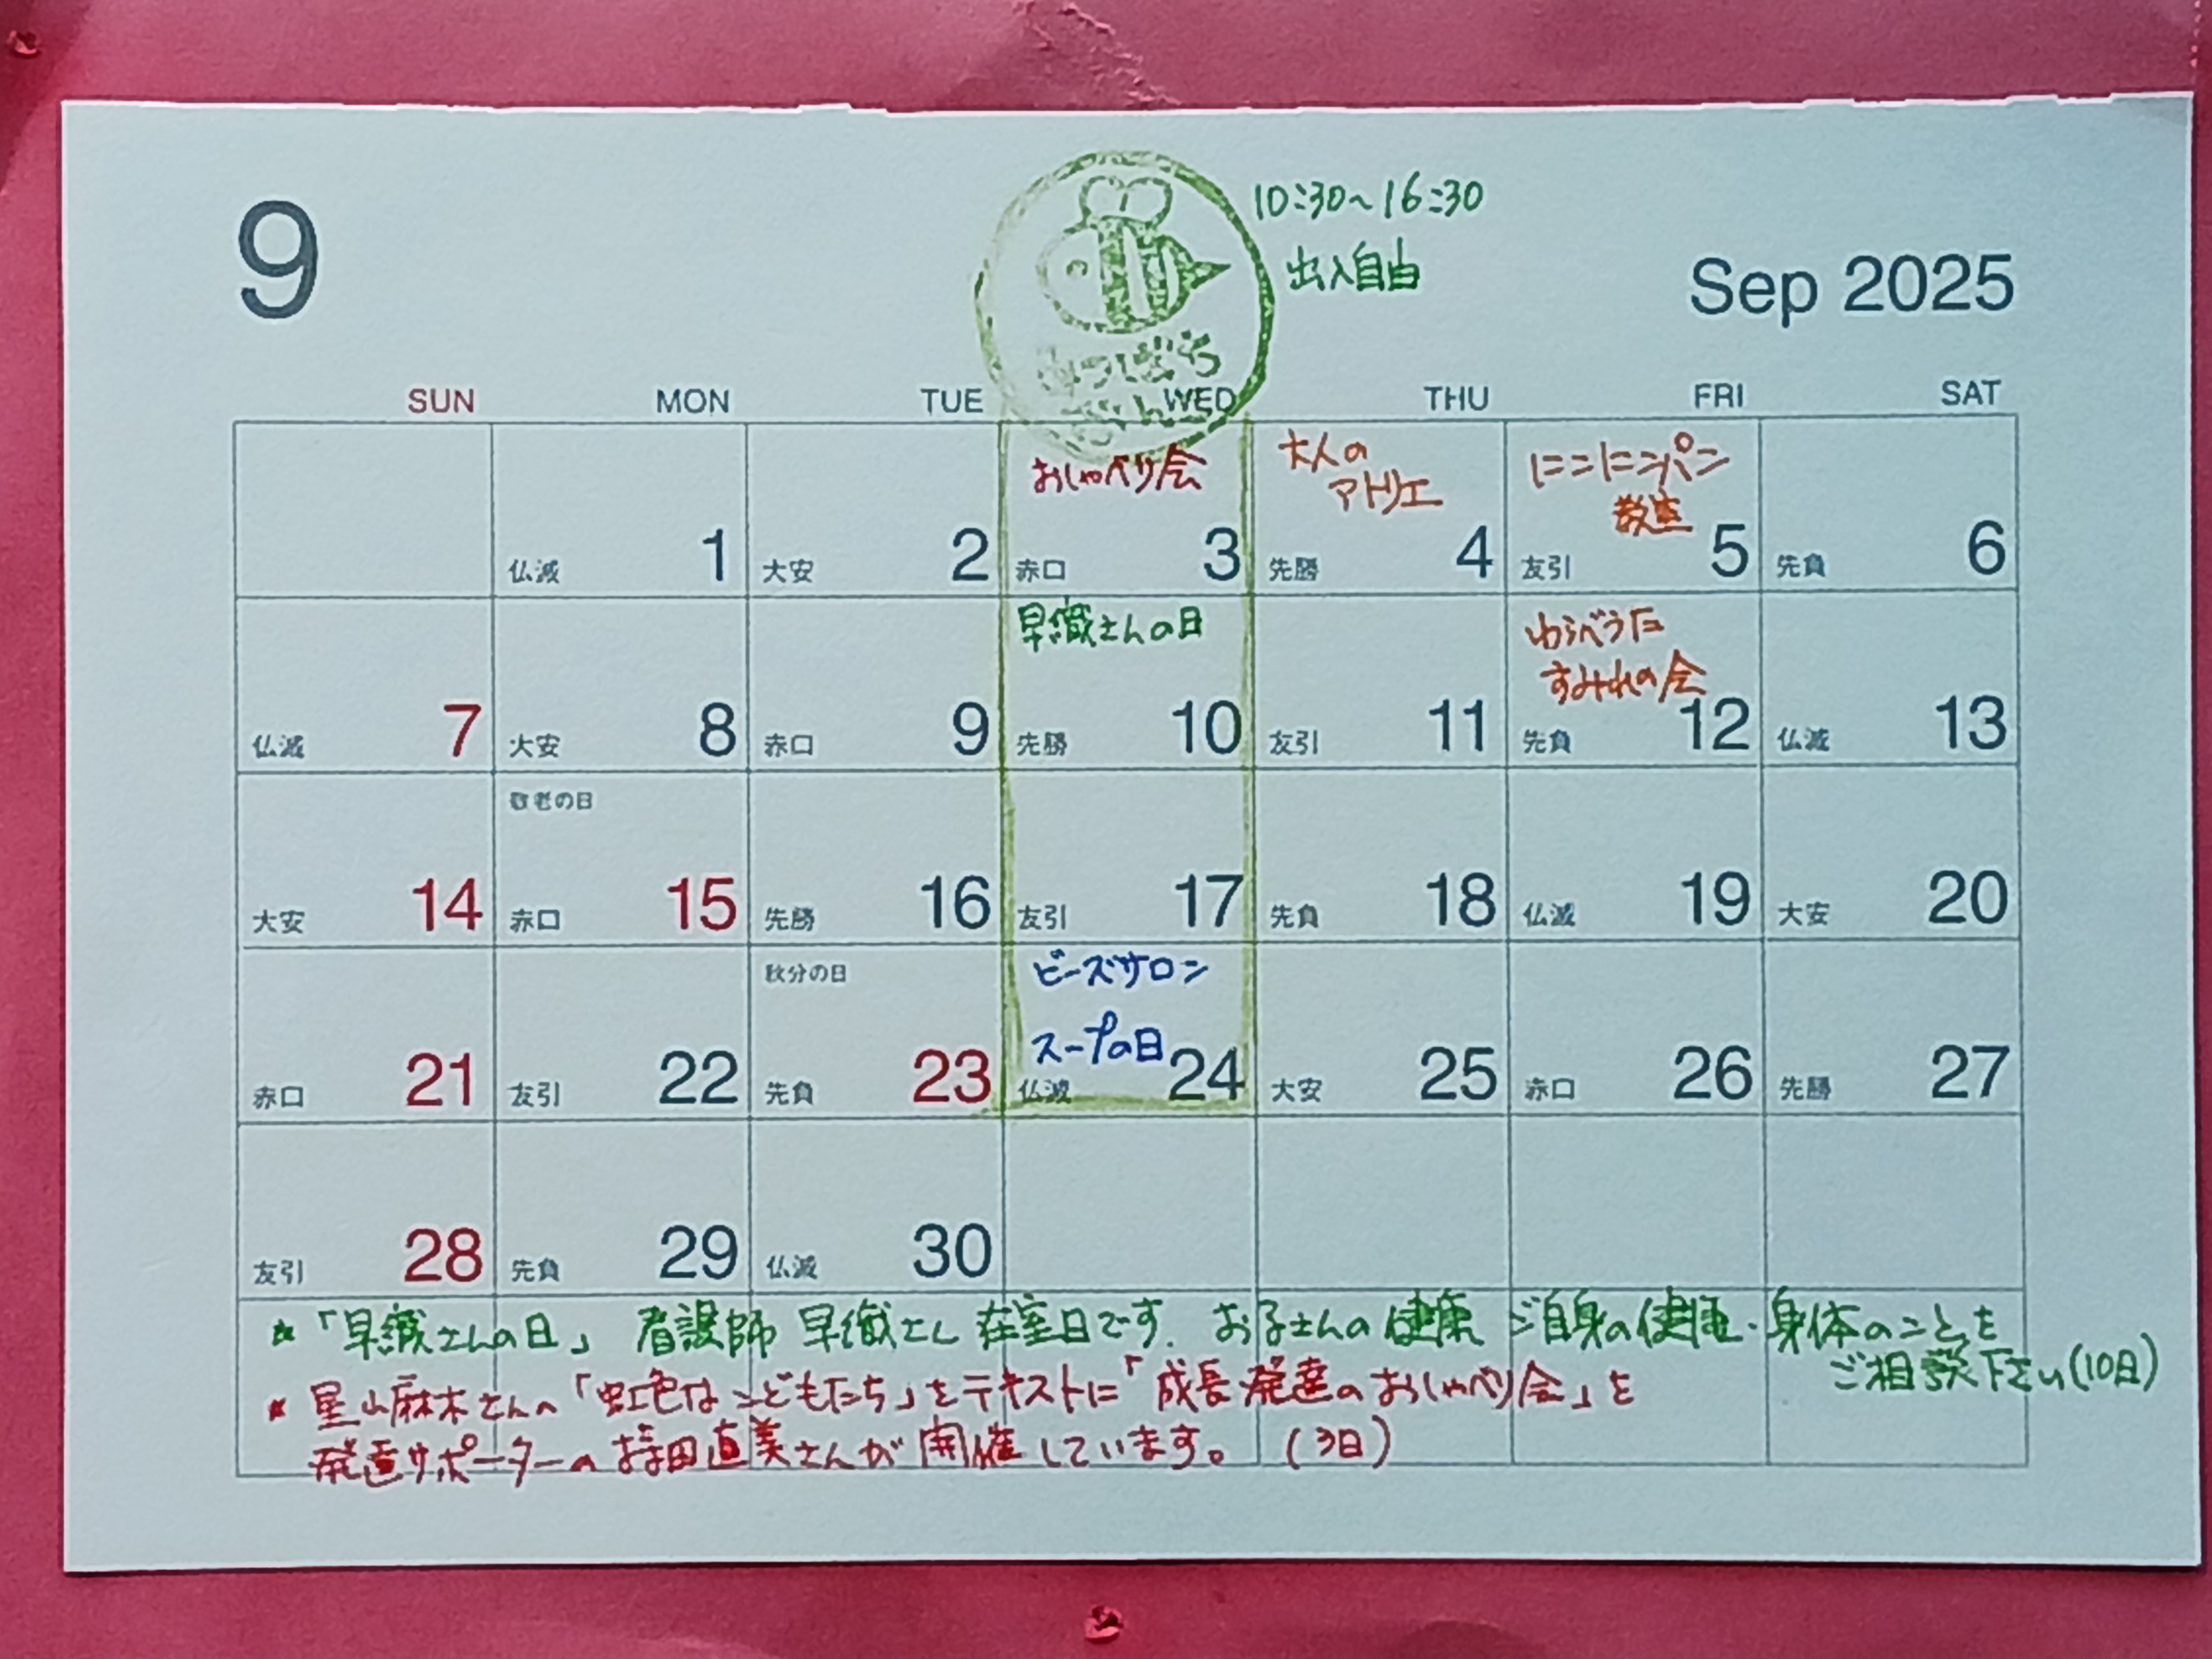 9
10:30~16:30
出入自由
Sep 2025
みつばち
SUN MON TUE WED THU FRI SAT
おしゃべり会
大人の
アトリエ
にこにこパン
教室
仏滅 1 大安 2 赤口 3 先勝 4 友引 5 先負 6
早織さんの日
わらべうた
すみれの会
仏滅 7 大安 8 赤口 9 先勝 10 友引 11 先負 12 仏滅 13
敬老の日
大安 14 赤口 15 先勝 16 友引 17 先負 18 仏滅 19 大安 20
秋分の日
ビーズサロン
スープの日
赤口 21 友引 22 先負 23 仏滅 24 大安 25 赤口 26 先勝 27
友引 28 先負 29 仏滅 30
*「早織さんの日」 看護師 早織さん 在室日です. お子さんの健康 ご自身の健康・身体のことを
ご相談下さい(10日)
* 星山麻木さんの「虹色なこどもたち」をテキストに「成長・発達のおしゃべり会」を
発達サポーターの持田直美さんが開催しています。 (3日)